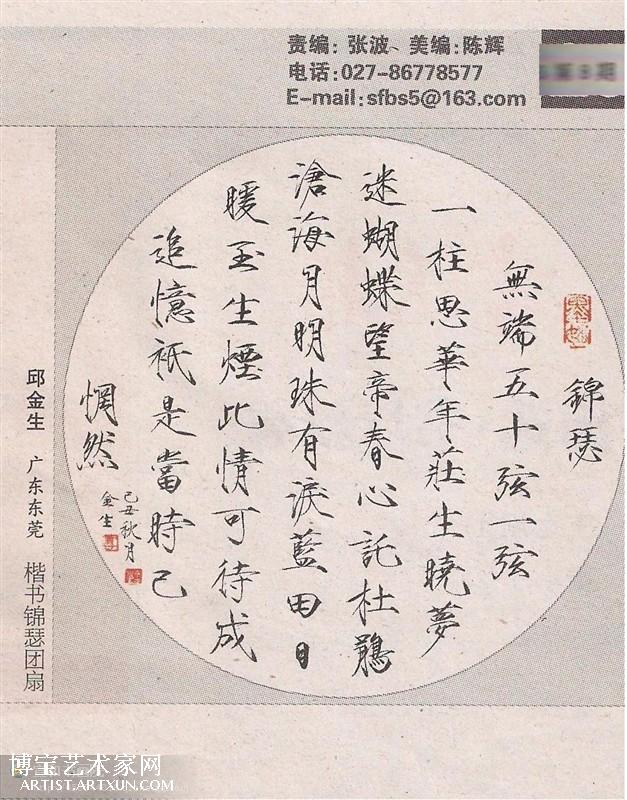 责编: 张波、美编:陈辉
电话:027-86778577
E-mail:sfbs5@163.com
錦瑟
無端五十弦一弦
一柱思華年莊生曉夢
迷蝴蝶望帝春心託杜鵑
滄海月明珠有淚藍田日
暖玉生煙此情可待成
追憶祇是當時已
惘然
己丑秋月
金生
邱金生 广东东莞 楷书锦瑟团扇
博宝艺术家网
ARTIST.ARTXUN.COM